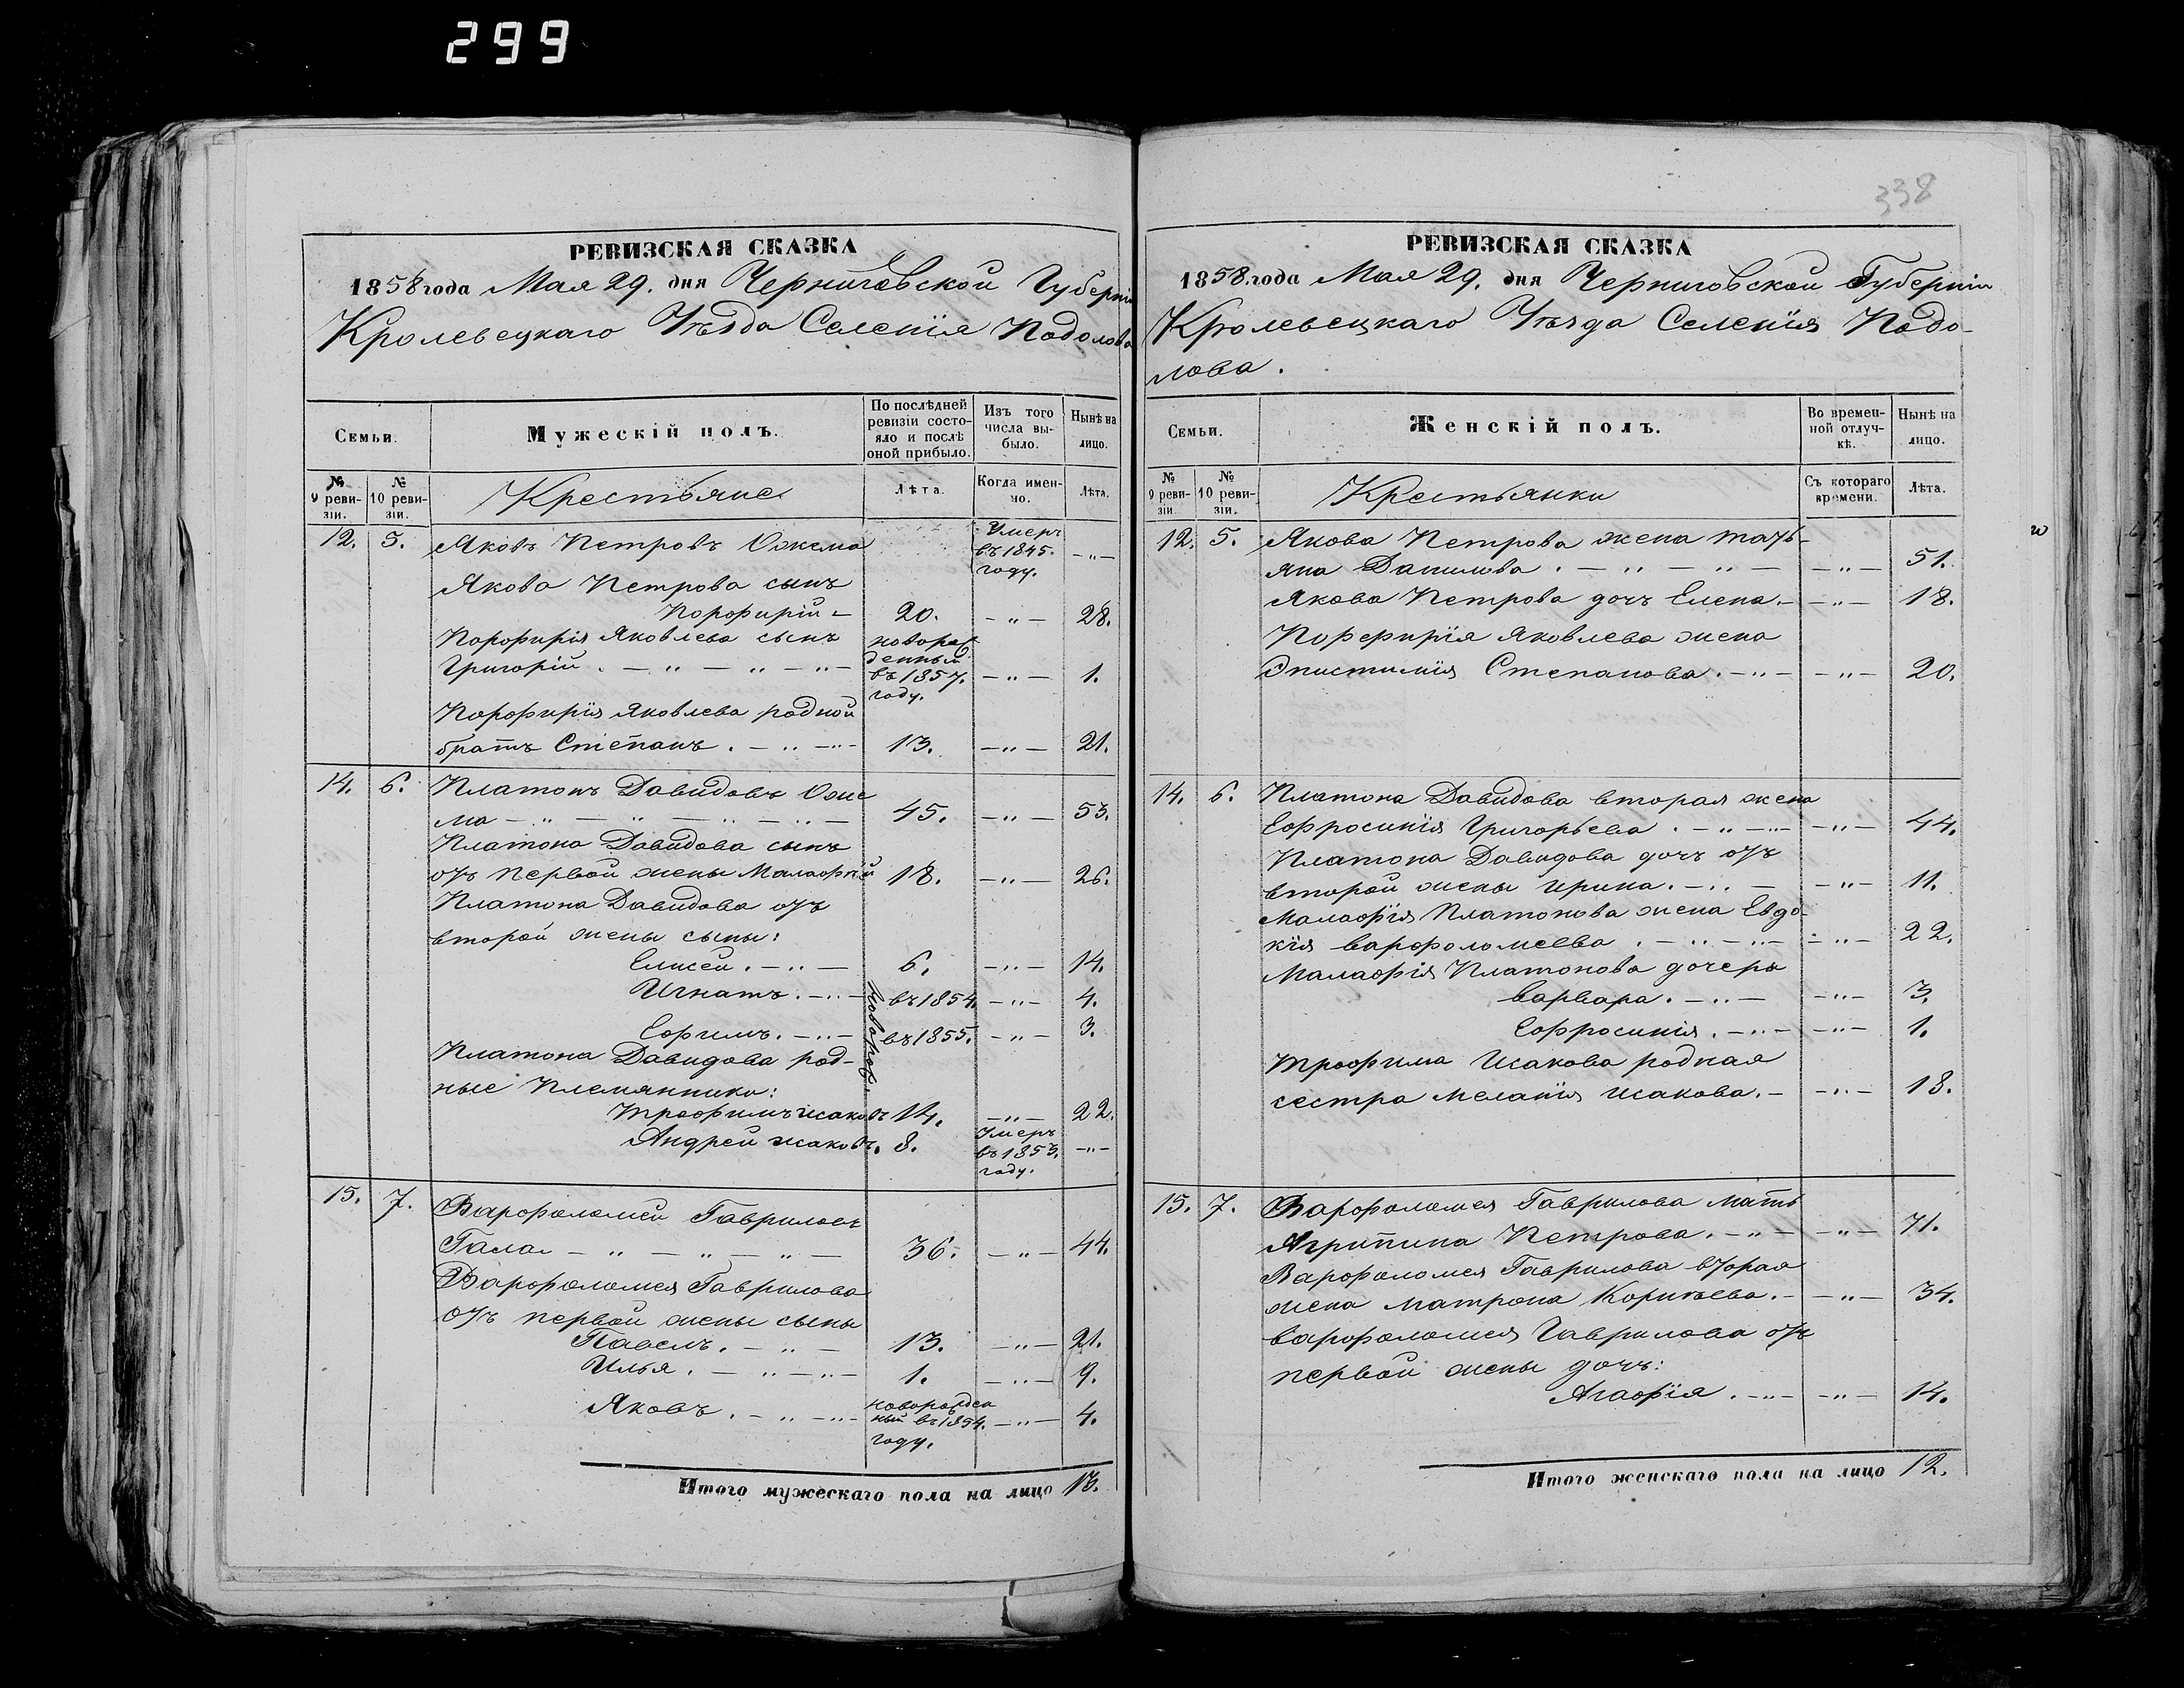 299
РЕВИЗСКАЯ СКАЗКА
1858 года Мая 29. дня Черниговской Губерніи
Кролевецкаго Уѣзда Селенія Подолова
Семьи.
Мужескій полъ.
По послѣдней ревизіи состояло и послѣ оной прибыло.
Изъ того числа выбыло.
Нынѣ на лицо.
№ 9 ревизіи.
№ 10 ревизіи.
Крестьяне
Лѣта.
Когда именно.
Лѣта.
12. 5. Яковъ Петровъ Ожема Умеръ въ 1845. году. —„—
Якова Петрова сынъ
Порфирій — 20. —„— 28.
Порфирія Яковлева сынъ
Григорій . — „ — „ — „ — новорожденный въ 1857. году. —„— 1.
Порфирія Яковлева родной
братъ Степанъ . — „ — „ — 13. —„— 21.
14. 6. Платонъ Давидовъ Оже
ма — „ — „ — „ — „ — 45. —„— 53.
Платона Давидова сынъ
отъ первой жены Малафій 18. —„— 26.
Платона Давидова отъ
второй жены сыны:
Елисей . — „ — 6. —„— 14.
Игнатъ . — „ — новорож. въ 1854. —„— 4.
Ефимъ . — „ — въ 1855. —„— 3.
Платона Давидова род-
ные племянники:
Трофимъ Исаковъ 14. —„— 22.
Андрей Исаковъ. 8. Умеръ въ 1853. году. —„—
15. 7. Варфоломей Гавриловъ
Гала — „ — „ — „ — 36. —„— 44.
Варфоломея Гаврилова
отъ первой жены сыны
Павелъ . — „ — 13. —„— 21.
Илья . — „ — „ — 1. —„— 9.
Яковъ . — „ — „ — новорожденный въ 1854. году. —„— 4.
Итого мужескаго пола на лицо 13.
338
РЕВИЗСКАЯ СКАЗКА
1858. года Мая 29. дня Черниговской Губерніи
Кролевецкаго Уѣзда Селенія Подо-
лова.
Семьи.
Женскій полъ.
Во временной отлучкѣ.
Нынѣ на лицо.
№ 9 ревизіи.
№ 10 ревизіи.
Крестьянки
Съ котораго времени.
Лѣта.
12. 5. Якова Петрова жена Тать-
яна Данилова . — „ — „ — —„— 51.
Якова Петрова дочь Елена. — —„— 18.
Порфирія Яковлева жена
Эпистимія Степанова . — „ — —„— 20.
14. 6. Платона Давидова вторая жена
Ефросинія Григорьева . — „ — —„— 44.
Платона Давидова дочь отъ
второй жены Ирина. — „ — —„— 11.
Малафія Платонова жена Евдо-
кія Варфоломеева . — „ — „ — —„— 22.
Малафія Платонова дочери
Варвара. — „ — —„— 3.
Ефросинія. — „ — —„— 1.
Трофима Исакова родная
сестра Меланія Исакова. — —„— 18.
15. 7. Варфоломея Гаврилова мать
Агрипина Петрова. — „ — —„— 71.
Варфоломея Гаврилова вторая
жена Матрона Корнѣева. — —„— 34.
Варфоломея Гаврилова отъ
первой жены дочь:
Агафія . — „ — —„— 14.
Итого женскаго пола на лицо 12.